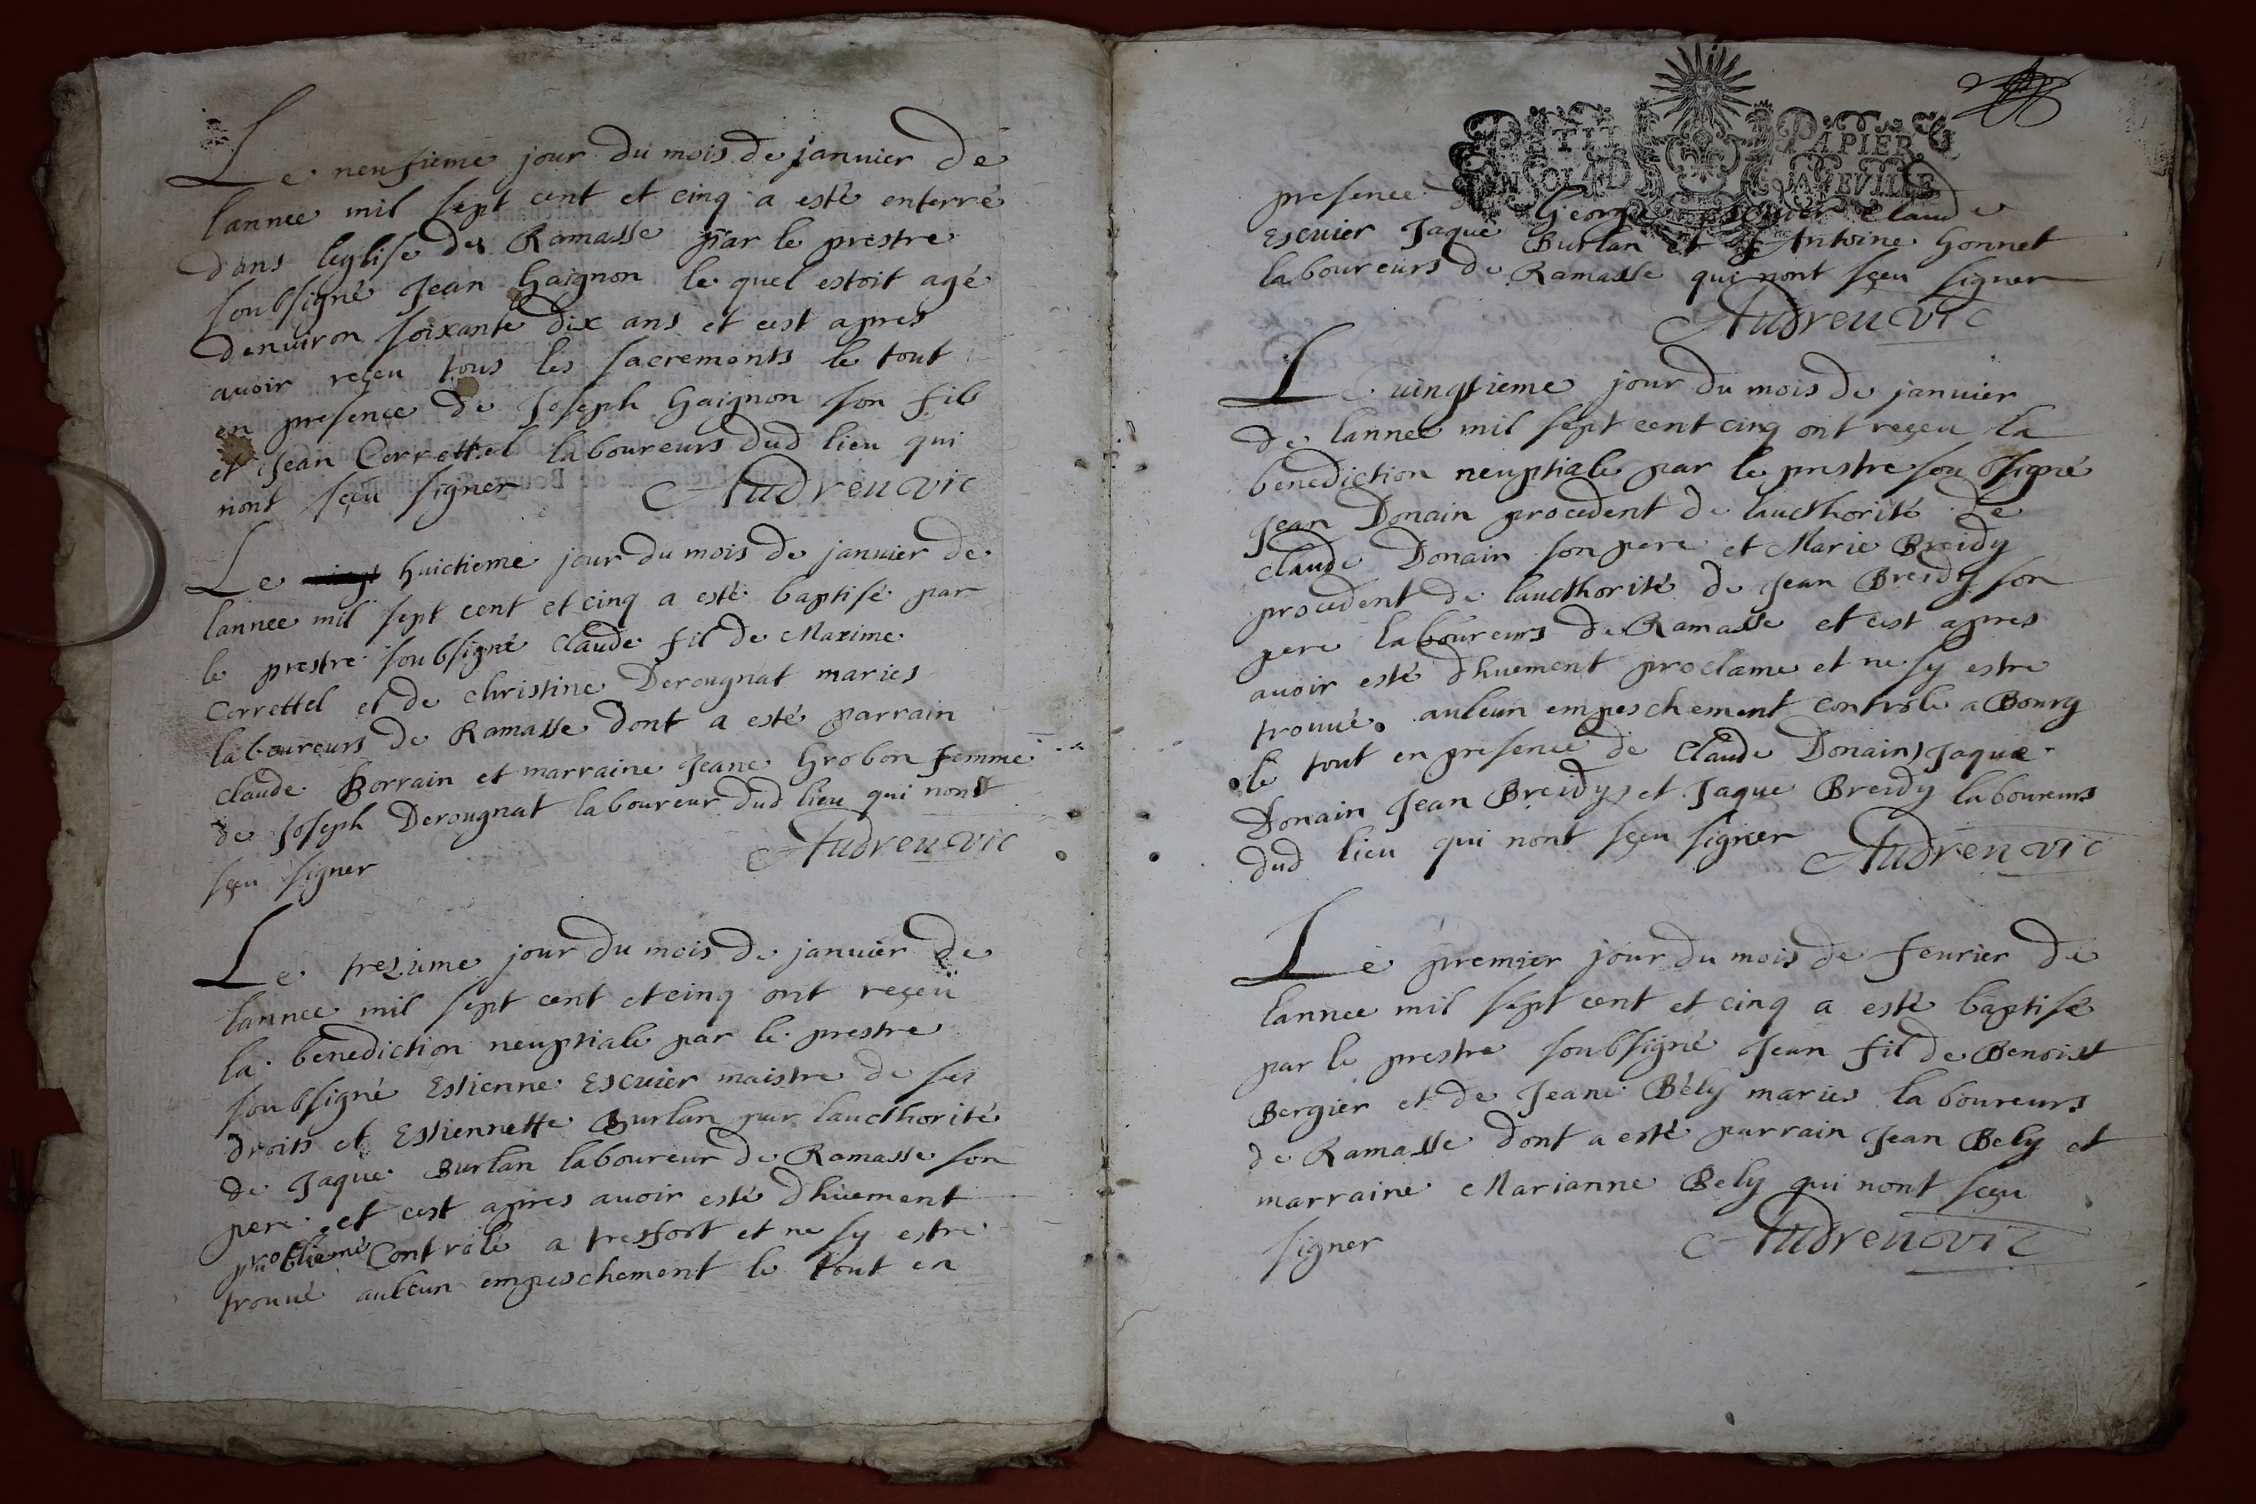 Le neufieme jour du mois de janvier de
lannee mil sept cent et cinq a esté enterré
dans leglise de Ramasse par le prestre
soubsigné Jean Gaignon le quel estoit agé
denuiron soixante dix ans et cest apres
auoir reçeu tous les sacrements le tout
en presence de Joseph Gaignon son fils
et Jean Correttel laboureurs dud lieu qui
nont sçeu signer Audreu vic
Le huictieme jour du mois de januier de
lannee mil sept cent et cinq a esté baptisé par
le prestre soubsigné Claude fil de Maxime
Correttel et de Christine Derougnat maries
laboureurs de Ramasse dont a esté parrain
Claude Borrain et marraine Jeane Grobon femme
de Joseph Derougnat laboureur dud lieu qui nont
sçeu signer Audreu vic
Le trezieme jour du mois de januier de
lannee mil sept cent et cinq ont reçeü
la benediction neuptiale par le prestre
soubsigné Estienne Escuier maistre de ses
droits et Estiennette Burlan par laucthorité
de Jaque Burlan laboureur de Ramasse son
pere et cest apres auoir esté dhuement
Controlé a tresfort et ne sy estre
trouué aulcun empeschement le tout en
PETIT PAPIER
presence George Claude
Escuier Jaque Burlan et Antoine Gonnet
laboureurs de Ramasse qui nont sçeu signer
Audreu vic
Le uingtieme jour du mois de januier
de lannee mil sept cent cinq ont reçeu la
benediction neuptiale par le prestre soubsigné
Jean Donain procedent de laucthorité de
Claude Donain son pere et Marie Breidy
procedent de laucthorité de Jean Breidy son
pere laboureurs de Ramasse et cest apres
auoir esté dhuement proclame et ne sy estre
trouué aulcun empeschement controle a Bourg
le tout en presence de Claude Donain Jaque
Donain Jean Breidy et Jaque Breidy laboureurs
dud lieu qui nont sçeu signer Audreu vic
Le premier jour du mois de feurier de
lannee mil sept cent et cinq a esté baptisé
par le prestre soubsigné Jean fil de Benoist
Bergier et de Jeane Bély maries laboureurs
de Ramasse dont a esté parrain Jean Bely et
marraine Marianne Bely qui nont sçeu
signer Audreu vic